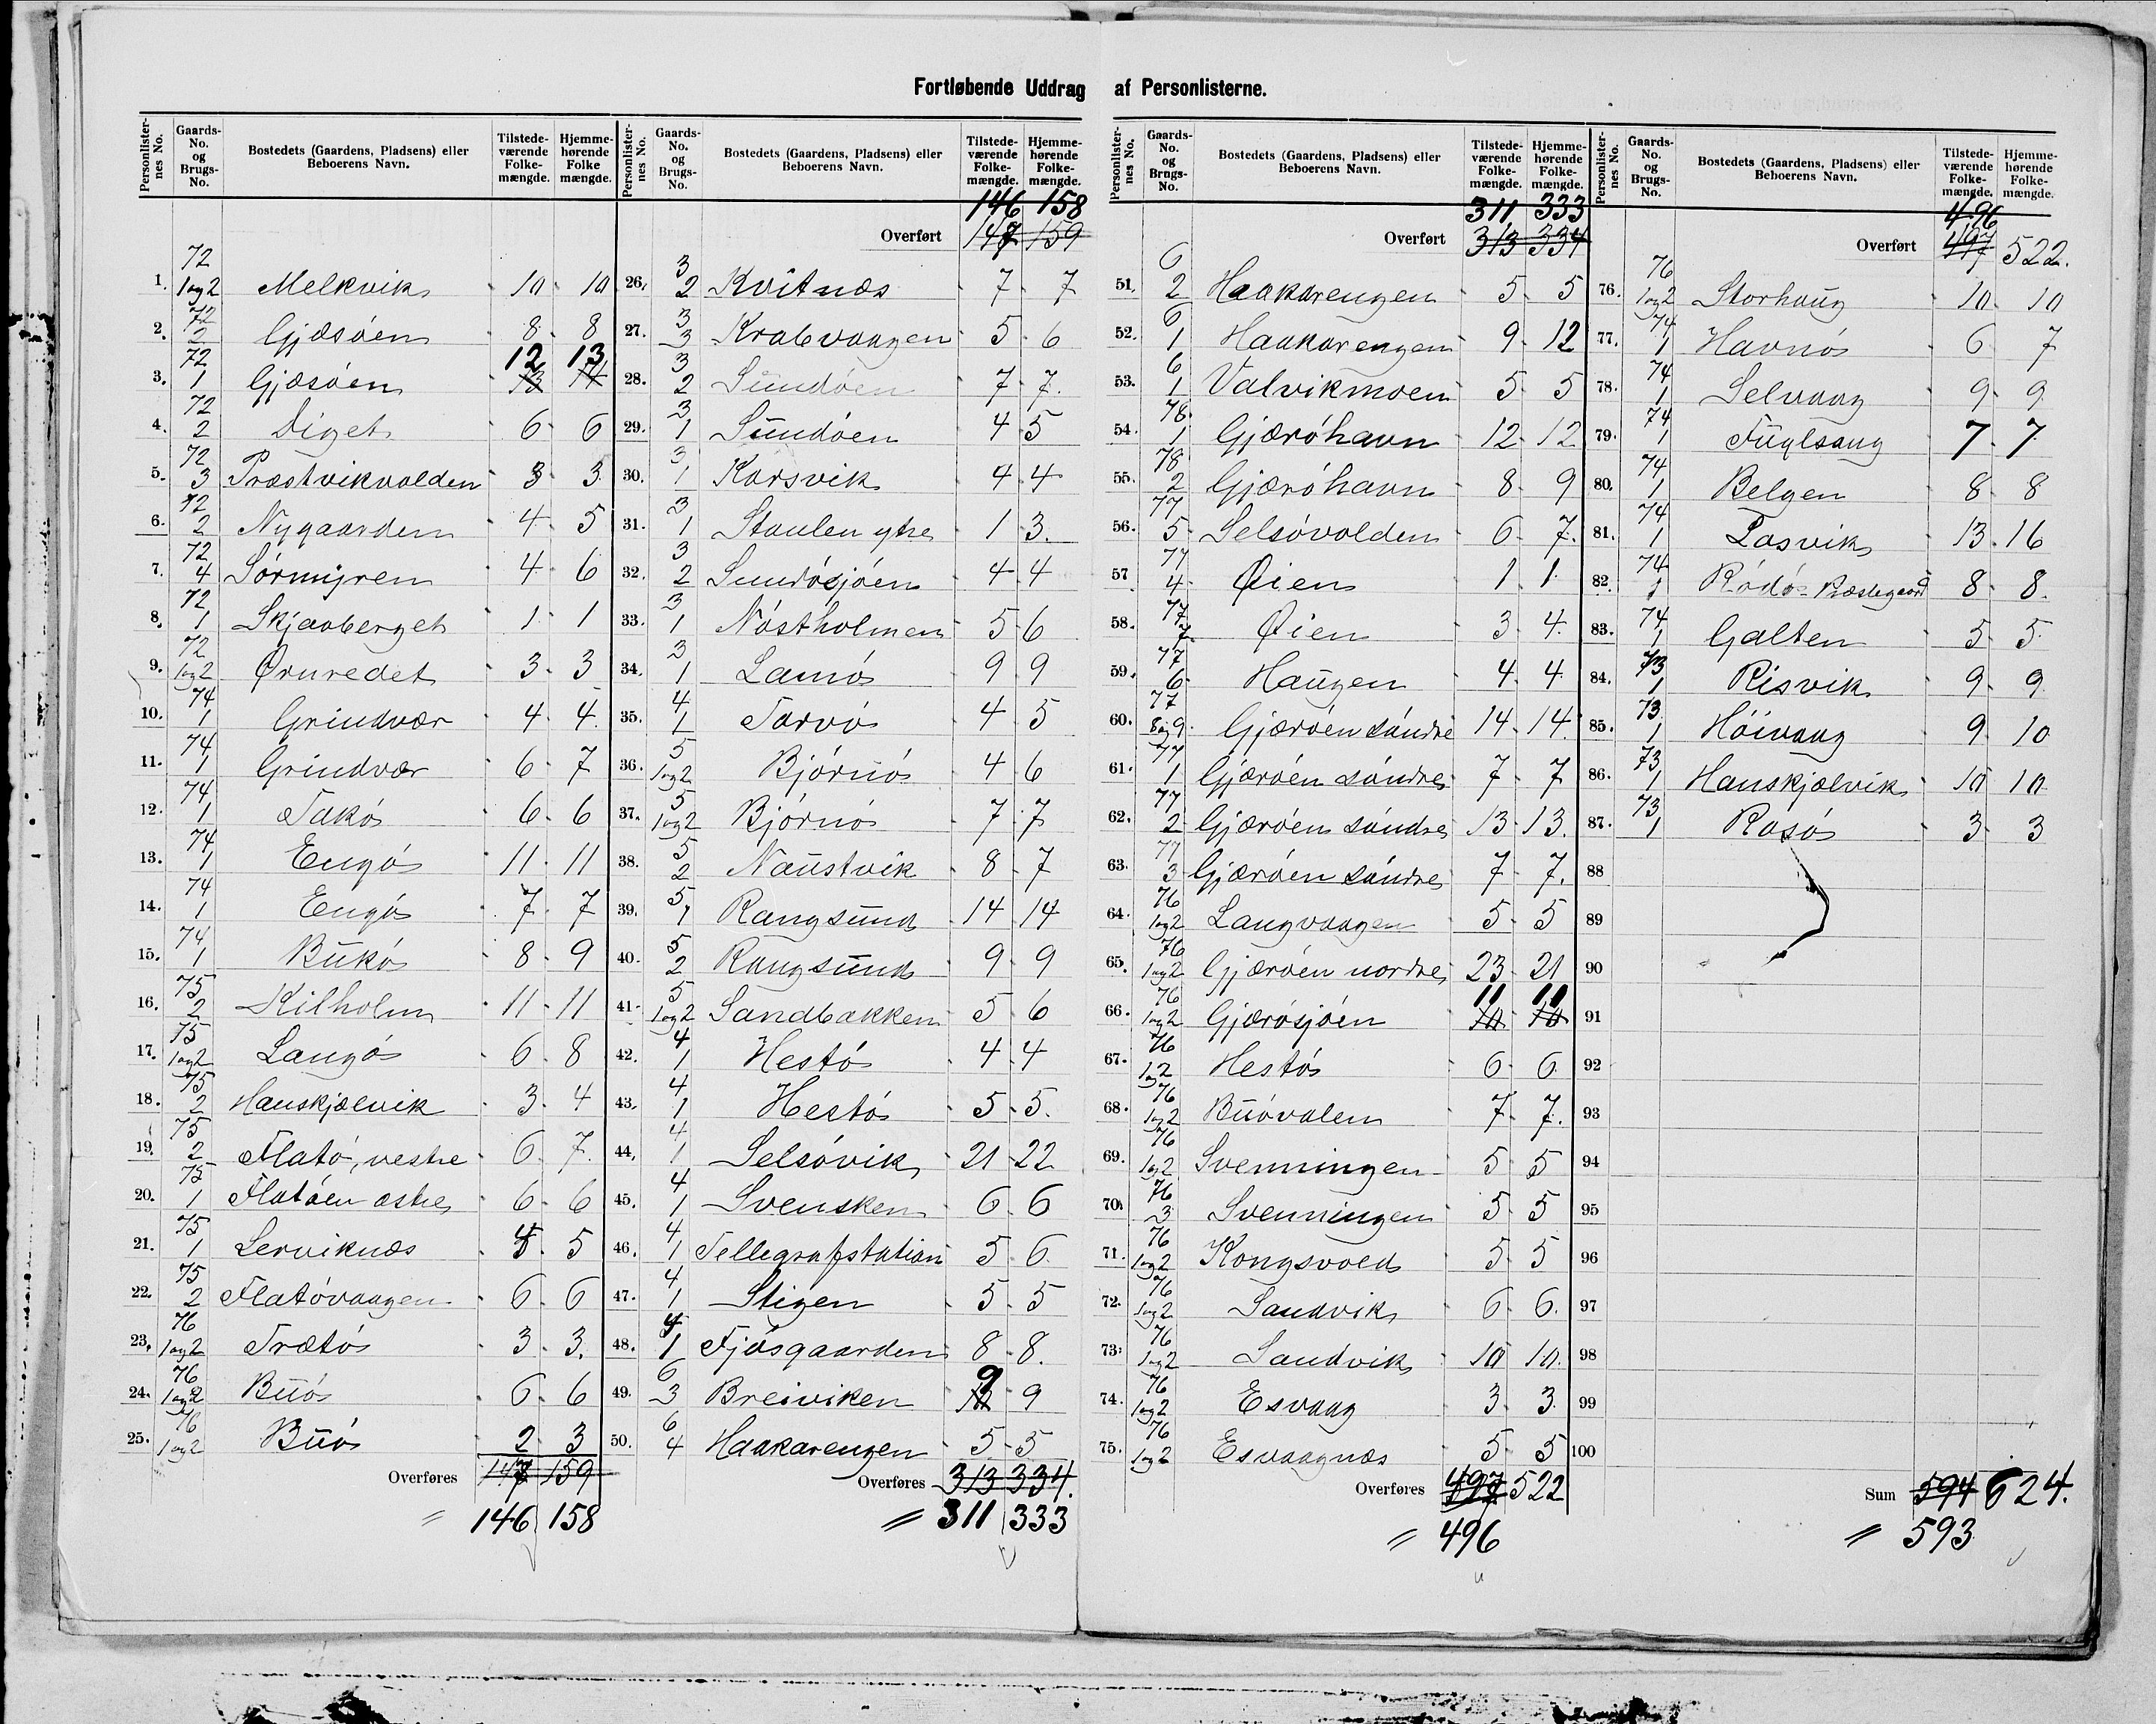 Fortløbende Uddrag af Personlisterne.
Personlister-nes No. | Gaards-No. og Brugs-No. | Bostedets (Gaardens, Pladsens) eller Beboerens Navn. | Tilstede-værende Folke-mængde. | Hjemme-hørende Folke mængde.
1. 72 1og2 Melkvik 10 10
2. 72 2 Gjæsøen 8 8
3. 72 1 Gjæsøen 12 13
4. 72 2 Diget 6 6
5. 72 3 Præstvikvolden 3 3
6. 72 2 Nygaarden 4 5
7. 72 4 Sørmyren 4 6
8. 72 1 Skjaaberget 1 1
9. 72 1og2 Ørnredet 3 3
10. 74 1 Grindvær 4 4
11. 74 1 Grindvær 6 7
12. 74 1 Takø 6 6
13. 74 1 Engø 11 11
14. 74 1 Engø 7 7
15. 74 1 Bukø 8 9
16. 75 2 Kilholm 11 11
17. 75 1og2 Langø 6 8
18. 75 2 Hanskjælvik 3 4
19. 75 2 Flatø, vestre 6 7
20. 75 1 Flatøen østre 6 6
21. 75 1 Lerviknæs 4 5
22. 75 2 Flatøvaagen 6 6
23. 76 1og2 Trætø 3 3.
24. 76 1og2 Buø 6 6
25. 76 1og2 Buø 2 3
Overføres 147 159
" 146 158
Personlister-nes No. | Gaards-No. og Brugs-No. | Bostedets (Gaardens, Pladsens) eller Beboerens Navn. | Tilstede-værende Folke-mængde. | Hjemme-hørende Folke-mængde.
146 158
Overført 147 159
26. 3 2 Kvitnæs 7 7
27. 3 3 Krabvaagen 5 6
28. 3 2 Sundøen 7 7.
29. 3 1 Sundøen 4 5
30. 3 1 Korsvik 4 4
31. 3 1 Staulen ytre 1 3.
32. 3 2 Sundøsjøen 4 4
33. 3 1 Nøstholmen 5 6
34. 3 1 Lamø 9 9
35. 4 1 Tarvø 4 5
36. 5 1og2 Bjørnø 4 6
37. 5 1og2 Bjørnø 7 7
38. 5 2 Naustvik 8 7
39. 5 1 Rangsund 14 14
40. 5 2 Rangsund 9 9
41. 5 1og2 Sandbakken 5 6
42. 4 1 Hestø 4 4
43. 4 1 Hestø 5 5.
44. 4 1 Selsøvik 21 22
45. 4 1 Svensken 6 6
46. 4 1 Tellegrafstation 5 6
47. 4 1 Stigen 5 5
48. 4 1 Fjøsgaarden 8 8.
49. 6 3 Breiviken 9 9
50. 6 4 Haakarengen 5 5
Overføres 313 334.
" 311 333
Personlister-nes No. | Gaards-No. og Brugs-No. | Bostedets (Gaardens, Pladsens) eller Beboerens Navn. | Tilstede-værende Folke-mængde. | Hjemme-hørende Folke-mængde.
311 333
Overført 313 334
51. 6 2 Haakarengen 5 5
52. 6 1 Haakarengen 9 12
53. 6 1 Valvikmoen 5 5
54. 78. 1 Gjærøhavn 12 12
55. 78 2 Gjærøhavn 8 9
56. 77 5 Selsøvolden 6 7.
57 77 4 Øien 1 1
58. 77 7 Øien 3 4
59. 77 6 Haugen 4 4
60. 77 8og9 Gjærøen søndre 14 14.
61. 77 1 Gjærøen søndre 7 7
62. 77 2 Gjærøen søndre 13 13.
63. 77 3 Gjærøen søndre 7 7.
64. 76 1og2 Langvaagen 5 5
65. 76 1og2 Gjærøen nordre 23 21
66. 76 1og2 Gjærøsjøen 11 11
67. 76 1og2 Hestø 6 6
68. 76 1og2 Buøvalen 7 7.
69. 76 1og2 Svenningen 5 5
70. 76 3 Svenningen 5 5
71. 76 1og2 Kongsvold 5 5
72. 76 1og2 Sandvik 6 6.
73. 76 1og2 Sandvik 10 10.
74. 76 1og2 Esvaag 3 3
75. 76 1og2 Esvaagnæs 5 5
Overføres 497 522
" 496
Personlister-nes No. | Gaards-No. og Brugs-No. | Bostedets (Gaardens, Pladsens) eller Beboerens Navn. | Tilstede-værende Folke-mængde. | Hjemme-hørende Folke-mængde.
496
Overført 497 522.
76. 76 1og2 Storhaug 10 10
77. 74 1 Havnø 6 7
78. 74 1 Selvaag 9 9
79. 74 1 Fuglsang 7 7
80. 74 1 Belgen 8 8
81. 74 1 Lasvik 13 16
82. 74 1 Rødø Præstegaard 8 8.
83. 74 1 Galten 5 5
84. 73 1 Risvik 9 9
85. 73 1 Høivaag 9 10
86. 73 1 Hanskjælvik 10 10
87. 73 1 Rosø 3 3
88
89
90
91
92
93
94
95
96
97
98
99
100
Sum 594 624.
" 593